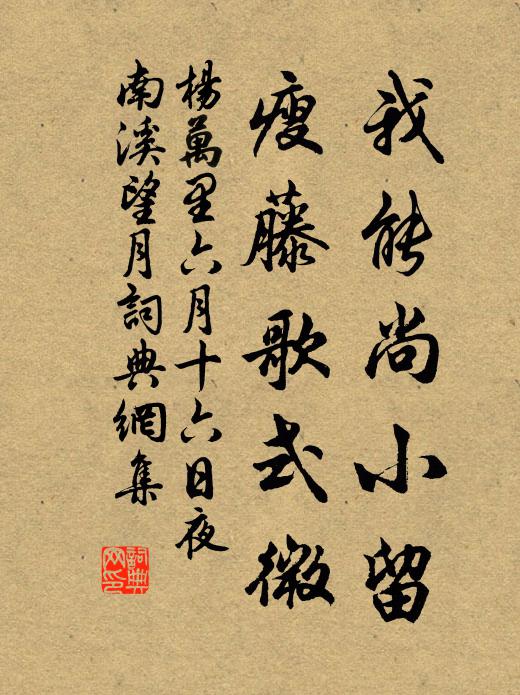 我能尚小留
瘦藤歌式微
楊萬里六月十六日夜
南溪望月詞典網集
詞典
网印